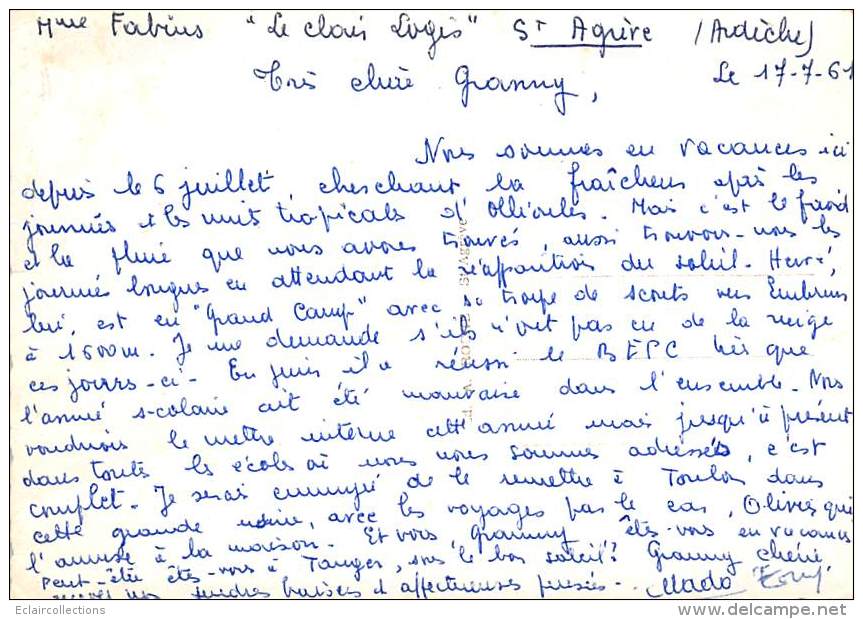 Mme Fabius "Le clair Logis" St Agrève (Ardèche)
Le 17-7-61
Très chère Granny,
Nous sommes en vacances ici
depuis le 6 juillet, cherchant la fraîcheur après les
journées et les nuits tropicales d'Ollioules. Mais c'est le froid
et la pluie que nous avons trouvés, aussi trouvons-nous les
journées longues en attendant la réapparition du soleil. Hervé,
lui, est en "Grand Camp" avec sa troupe de scouts vers Embrun
à 1600m. Je me demande s'ils n'ont pas eu de la neige
ces jours-ci. En juin il a réussi le BEPC bien que
l'année scolaire ait été mauvaise dans l'ensemble. Nous
voudrions le mettre interne cette année mais jusqu'à présent
dans toutes les écoles où nous nous sommes adressés, c'est
complet. Je serais ennuyée de le remettre à Toulon dans
cette grande usine, avec les voyages pas le car,
l'amuse à la maison. Et vous Granny êtes-vous en vacances
Peut-être êtes-vous à Tanger, sous le bon soleil? Granny chérie
recevez nos tendres baisers et affectueuses pensées. Mado
St Agrève
Eclaircollections
http://www.delcampe.net